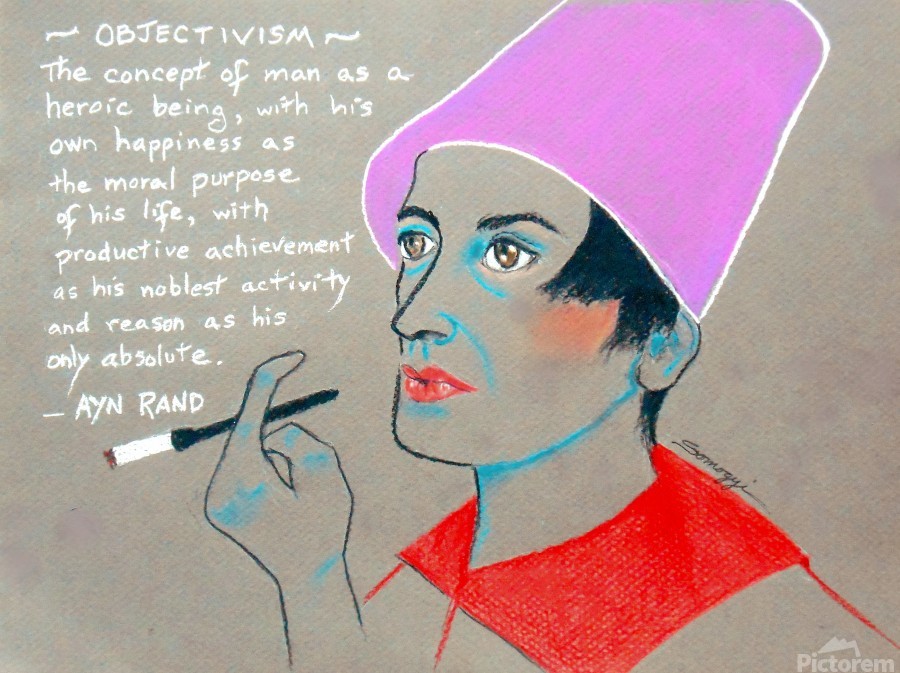 ~ OBJECTIVISM ~
The concept of man as a
heroic being, with his
own happiness as
the moral purpose
of his life, with
productive achievement
as his noblest activity
and reason as his
only absolute.
– AYN RAND
Somogyi
Pictorem